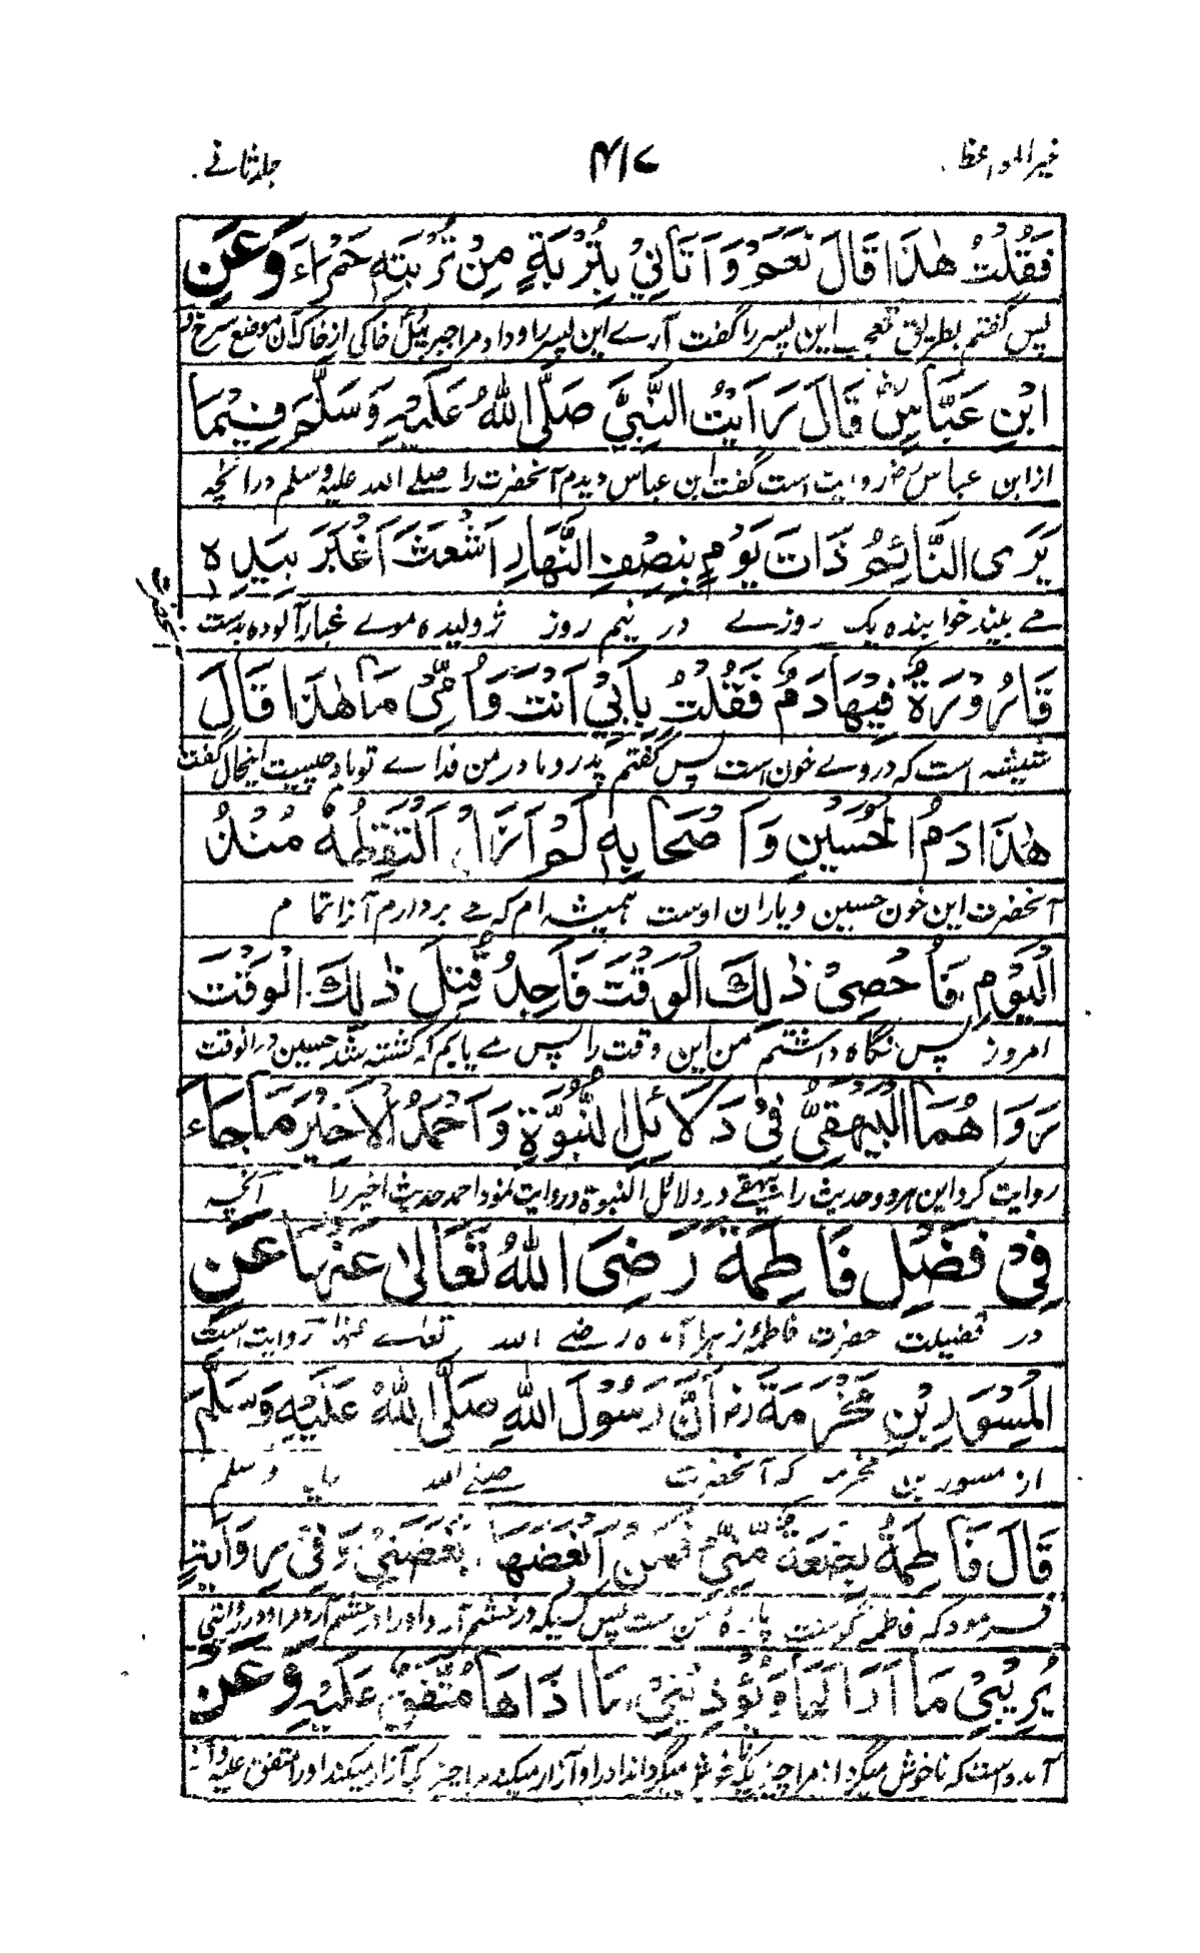 خیر المواعظ
۴۱۷
جلد ثانے
فَقُلْتُ هٰذَا قَالَ نَعَمْ وَاَتَانِيْ بِتُرْبَةٍ مِنْ تُرْبَتِهٖ حَمْرَاءَ وَعَنِ
پس گفتم بطریق تعجب این پسر را گفت آرے این پسر را و داد مرا جبرئیل خاکی از خاک آن موضع سرخ و
ابْنِ عَبَّاسٍ قَالَ رَاَيْتُ النَّبِيَّ صَلَّى اللّٰهُ عَلَيْهِ وَسَلَّمَ فِيْمَا
از ابن عباس روایت است گفت ابن عباس دیدم آنحضرت را صلے اللہ علیہ وسلم درانچہ
يَرَى النَّائِمُ ذَاتَ يَوْمٍ بِنِصْفِ النَّهَارِ اَشْعَثَ اَغْبَرَ بِيَدِهٖ
مے بیند خوابندہ یک روزے در نیم روز ژولیدہ موے غبار آلودہ بدست
قَارُوْرَةٌ فِيْهَا دَمٌ فَقُلْتُ بِاَبِيْ اَنْتَ وَاُمِّيْ مَا هٰذَا قَالَ
شیشہ است کہ دروے خون است پس گفتم پدر و مادر من فداے تو باد چیست اینحال گفت
هٰذَا دَمُ الْحُسَيْنِ وَاَصْحَابِهٖ لَمْ اَزَلْ اَلْتَقِطُهٗ مُنْذُ
آنحضرت این خون حسین و یاران اوست ہمیشہ ام کہ مے بردارم آنرا تا م
الْيَوْمِ فَاُحْصِيْ ذٰلِكَ الْوَقْتَ فَاَجِدُ قُتِلَ ذٰلِكَ الْوَقْتَ
امروز پس نگاہ داشتم من این وقت را پس مے یابم کہ کشتہ شد حسین درانوقت
رَوَاهُمَا الْبَيْهَقِيُّ فِيْ دَلَائِلِ النُّبُوَّةِ وَاَحْمَدُ الْاَخِيْرَ مَا جَاءَ
روایت کرد این ہردو حدیث را بیہقے در دلائل النبوة و روایت نمود احمد حدیث اخیر را آنچہ
فِيْ فَضْلِ فَاطِمَةَ رَضِيَ اللّٰهُ تَعَالٰى عَنْهَا عَنِ
در فضیلت حضرت فاطمہ زہرا رضے اللہ تعالے عنہا روایت است
الْمِسْوَرِ بْنِ مَخْرَمَةَ رض اَنَّ رَسُوْلَ اللّٰهِ صَلَّى اللّٰهُ عَلَيْهِ وَسَلَّمَ
از مسور بن مخرمہ کہ آنحضرت صلے اللہ وسلم
قَالَ فَاطِمَةُ بِضْعَةٌ مِّنِّيْ فَمَنْ اَبْغَضَهَا بَغَضَنِيْ وَفِيْ رِوَايَةٍ
فرمود کہ فاطمہ گوشت من ست پس کسیکہ در خشم آرد او را در خشم آرد مرا و در روایتی
يُرِيْبُنِيْ مَا اَرَابَهَا وَيُؤْذِيْنِيْ مَا اٰذَاهَا مُتَّفَقٌ عَلَيْهِ وَعَنْ
آمدہ است کہ ناخوش میگرداند مرا چیزیکہ میگرداند او را و آزار میکند مرا چیزیکہ آزار میکند او را متفق علیہ و از